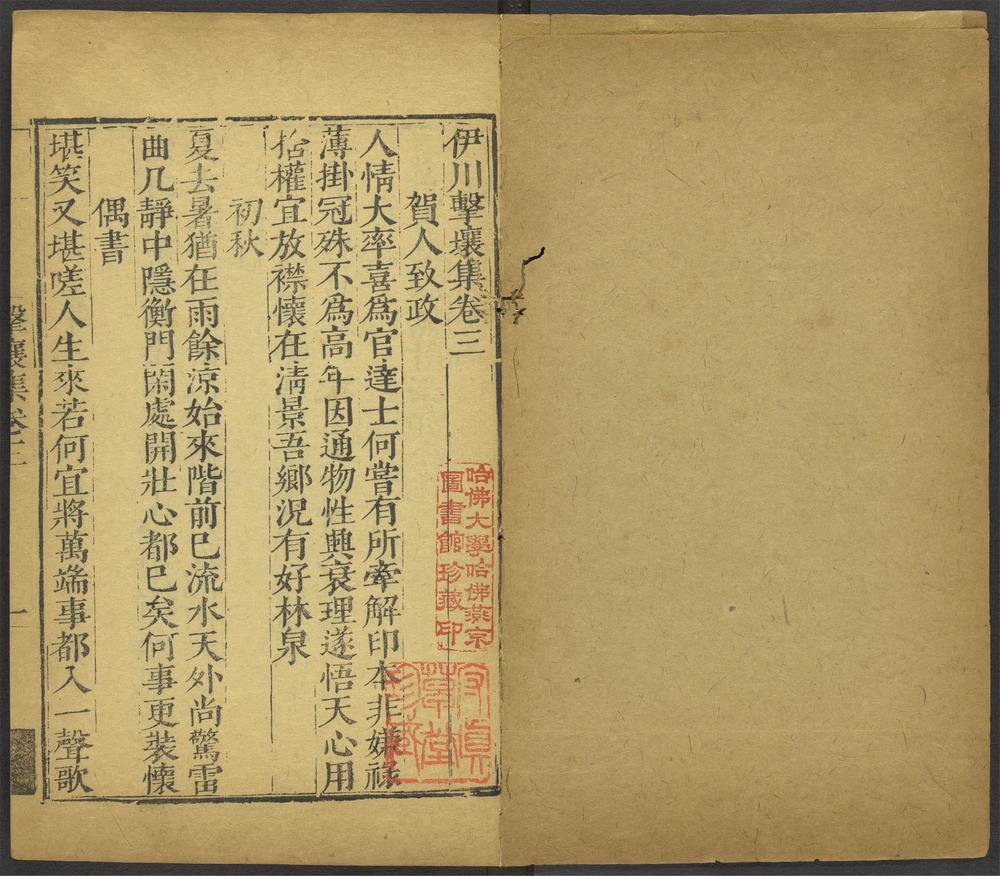 伊川擊壤集卷三
賀人致政
人情大率喜爲官達士何嘗有所牽解印本非嫌祿
薄掛冠殊不爲高年因通物性興衰理遂悟天心用
捨權宜放襟懷在淸景吾鄉況有好林泉
初秋
夏去暑猶在雨餘涼始來階前巳流水天外尚驚雷
曲几靜中隱衡門閑處開壯心都巳矣何事更裝懷
偶書
堪笑又堪嗟人生來若何宜將萬端事都入一聲歌
擊壤集卷三
一
哈佛大學哈佛燕京
圖書館珍藏印
草堂